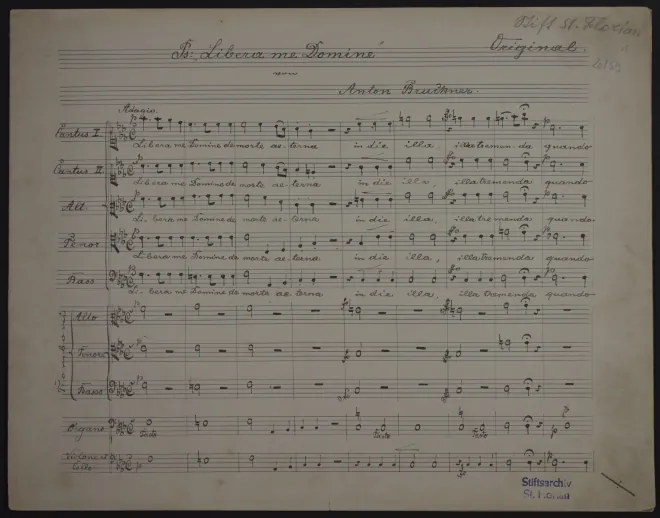 Stift St. Florian
Ps: „Libera me Domine"
Original.
vom
Anton Bruckner.
Adagio.
Cantus I
Libera me Domine de morte ae-terna in die illa, illa tremenda quando
Cantus II
Libera me Domine de morte ae-terna in die illa, illa tremenda quando
Alt
Li-bera me Domine de morte ae-terna in die illa, illa tremenda quando
Tenor
Libera me Domine de morte ae-terna in die illa, illa tremenda quando
Bass
Li-bera me Domine de morte ae-terna in die illa, illa tremenda quando
Alto
Tenore
Basso
Organo
tasto tasto tasto
Violone e
Cello
Stiftsarchiv
St. Florian